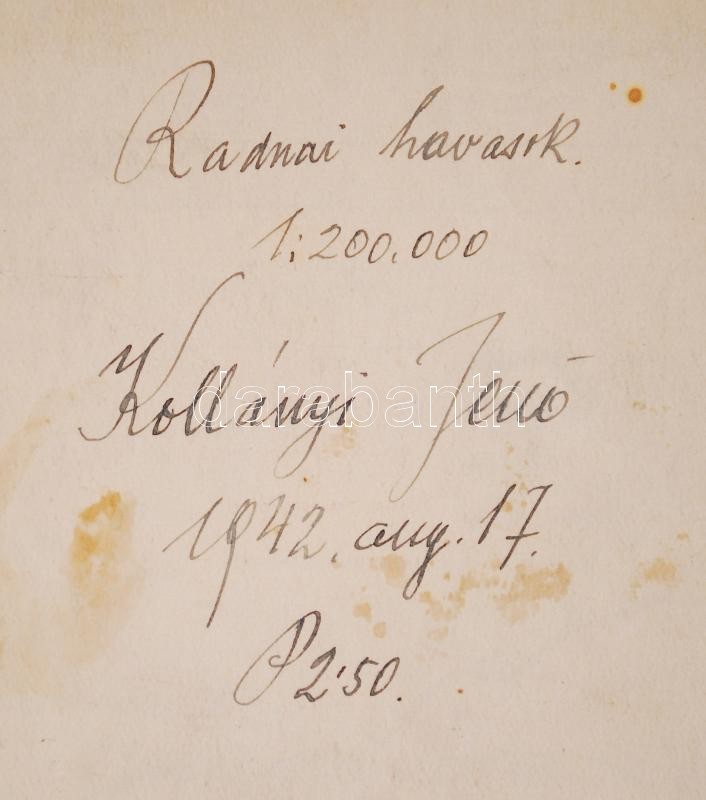 Radnai havasok.
1:200.000
Kollányi Jenő
darabanth
1942. aug. 17.
P 2·50.